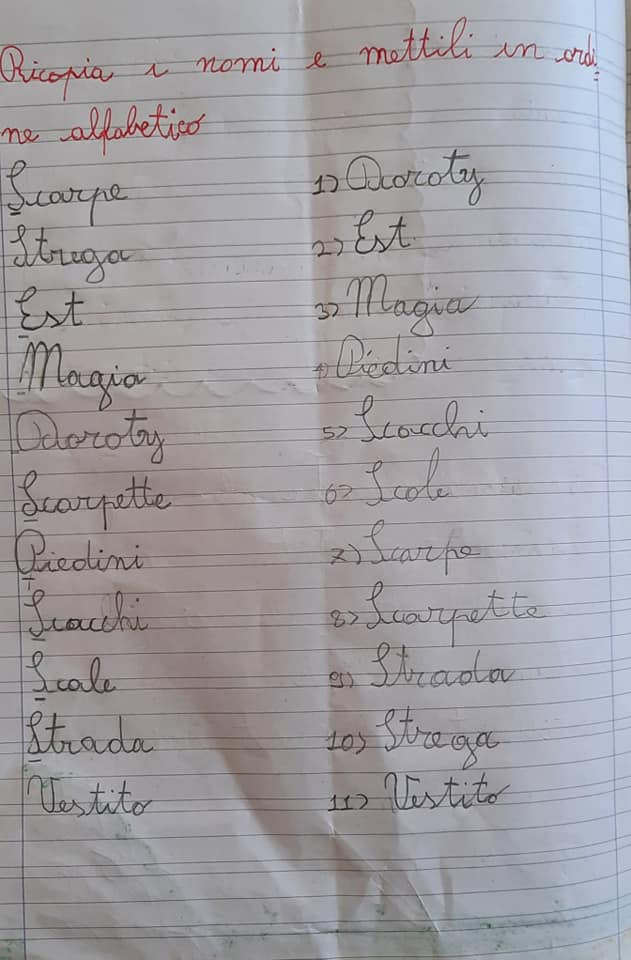 Ricopia i nomi e mettili in ordi-
ne alfabetico
Scarpe
Strega
Est
Magia
Doroty
Scarpette
Piedini
Scacchi
Scale
Strada
Vestito
1) Doroty
2) Est
3) Magia
4) Piedini
5) Scacchi
6) Scale
7) Scarpe
8) Scarpette
9) Strada
10) Strega
11) Vestito